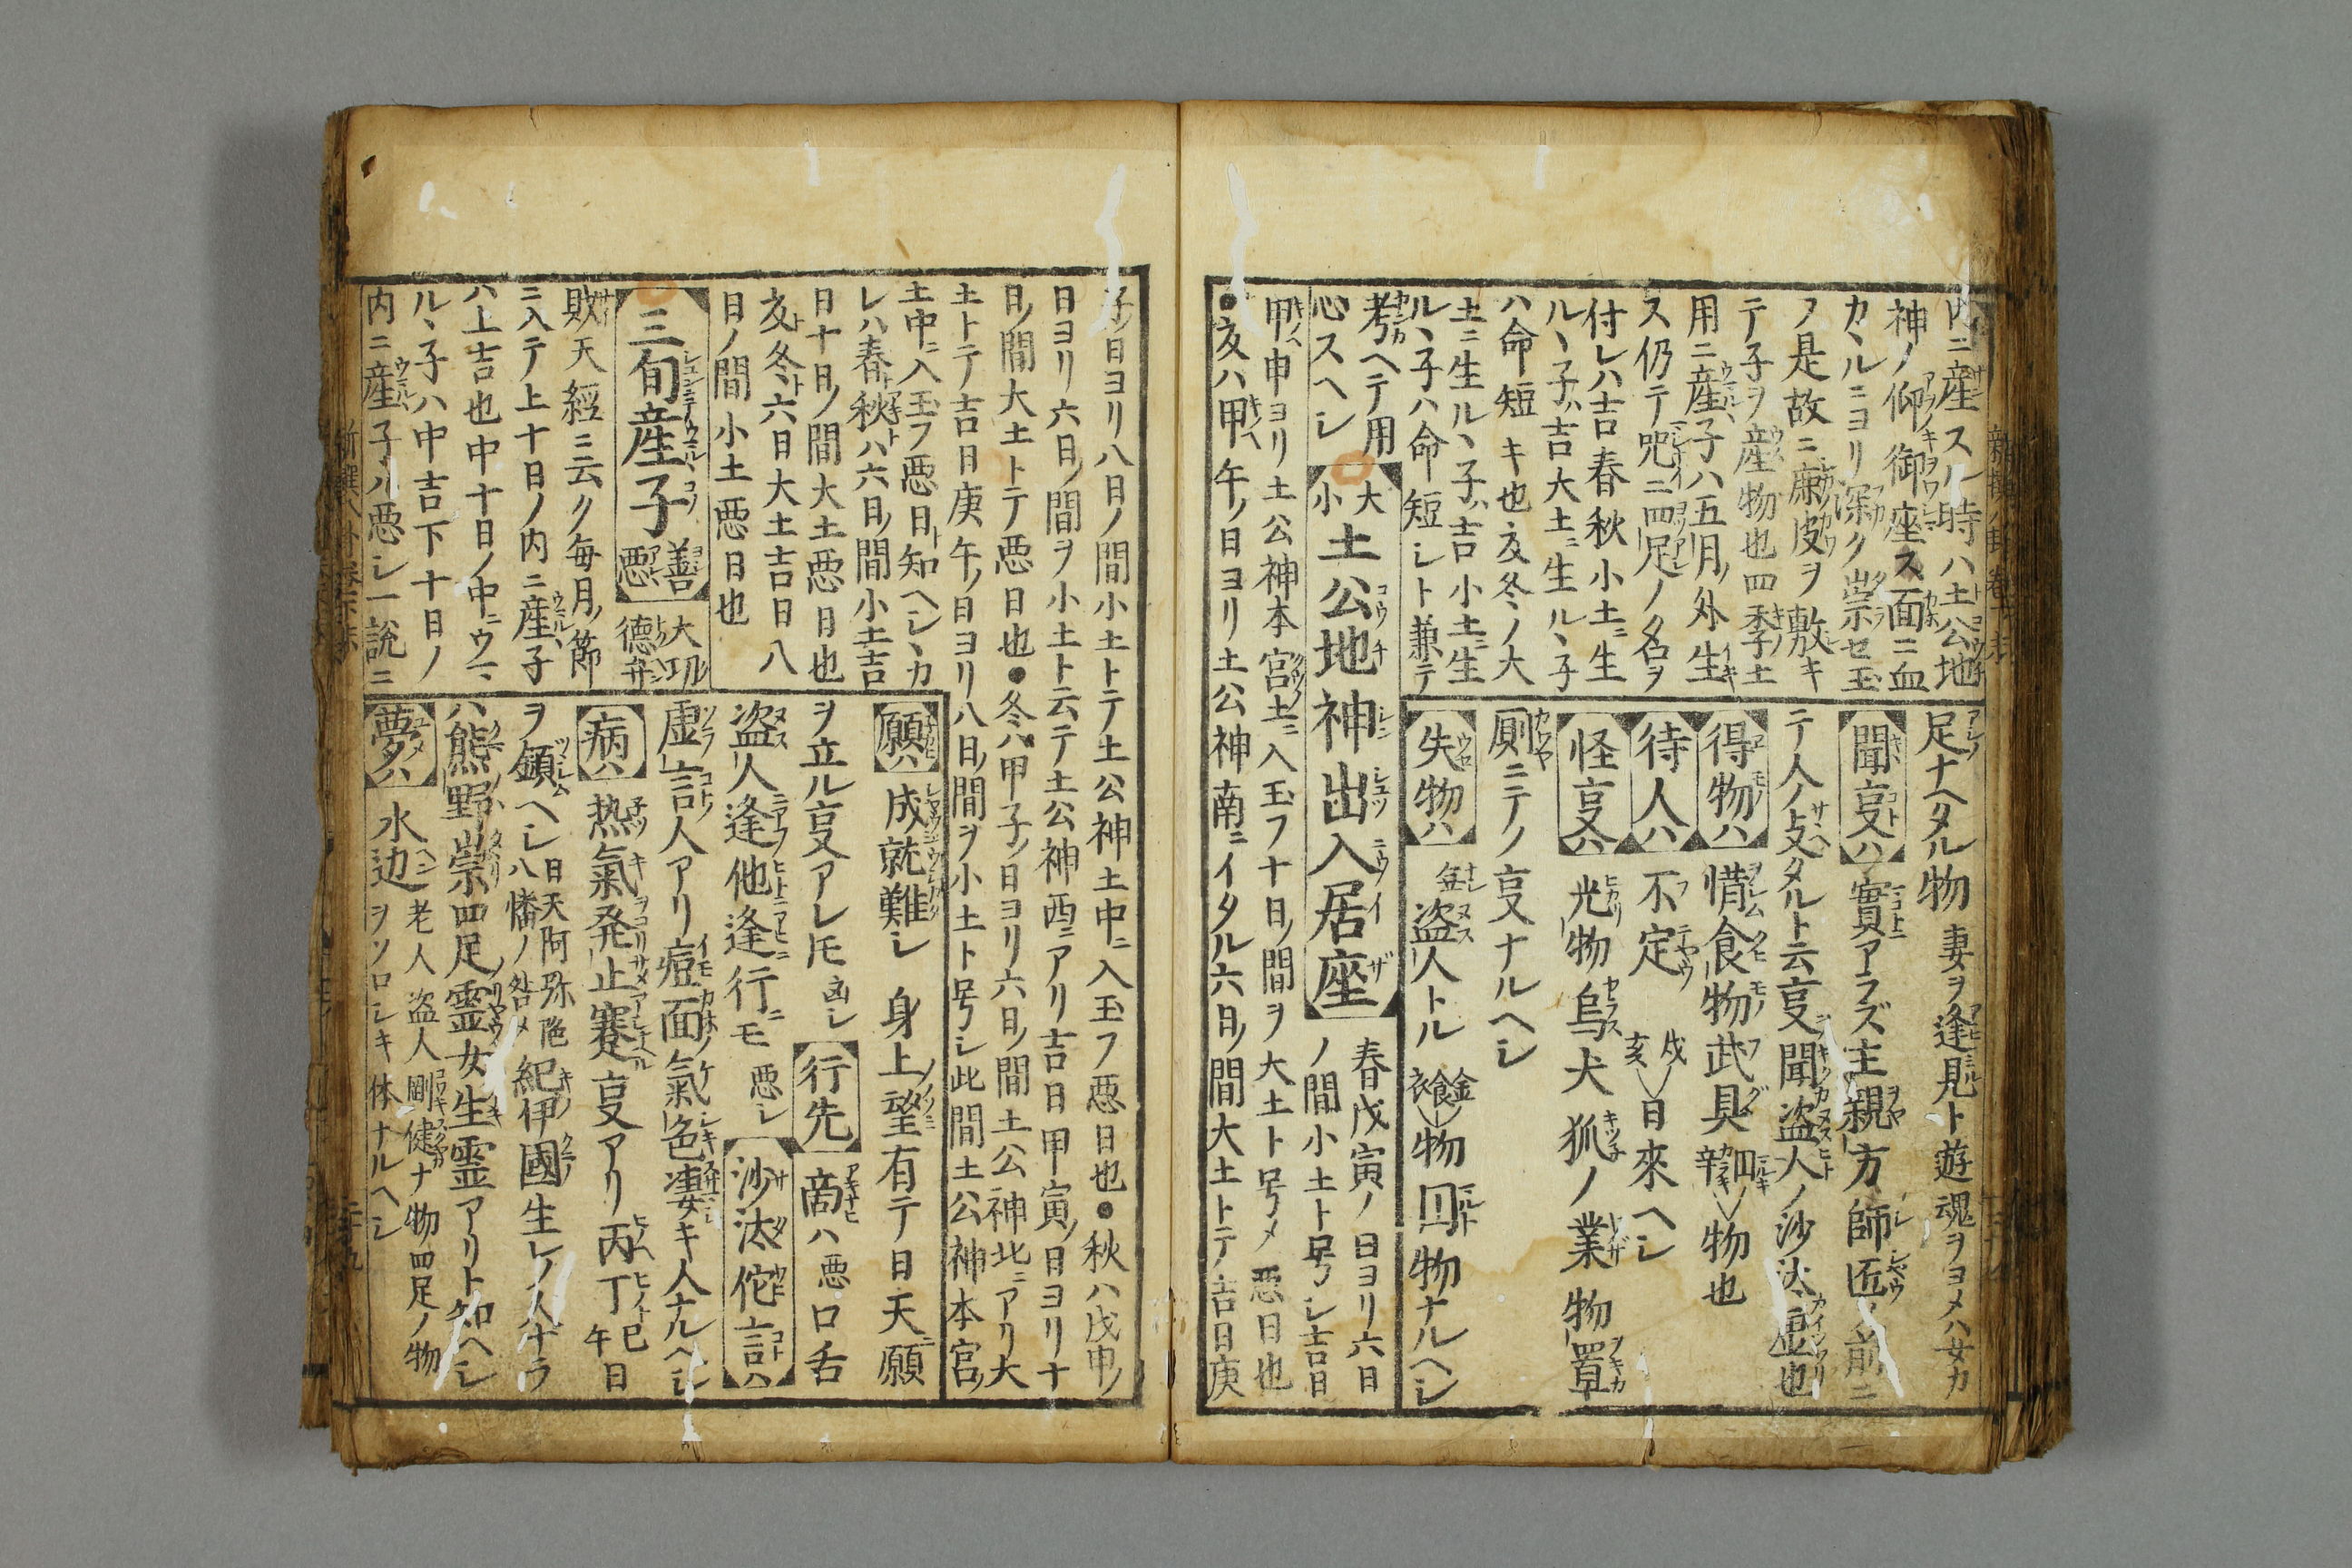 内ニ産スル時ハ土公地
神ノ仰御座ス面ニ血
カヽルニヨリ深ク崇セ玉
フ是故ニ麻皮ヲ敷キ
テ子ヲ産物也四季ノ土
用ニ産子ハ五月ノ外生
ス仍テ咒ニ四足ノ名ヲ
付レハ吉春秋小土ニ生
ルヽ子ハ吉大土ニ生ルヽ子
ハ命短キ也夏冬ノ大
土ニ生ルヽ子ハ吉小土ニ生
ルヽ子ハ命短シト兼テ
考ヘテ用
心スヘシ
足ナヘタル物 妻ヲ逢見ト遊魂ヲヨメハ女カ
聞事ハ 實アラズ主親方師匠ノ前ニ
テ人ノ支タルト云事聞盗人ノ沙汰虚也
得物ハ 惜食物武具 辛 物也
待人ハ 不定 戌亥日來ヘシ
怪事ハ 光物烏犬狐ノ業物置
厠ニテノ事ナルヘシ
失物ハ 盗人トル 金食衣物 回物ナルヘシ
大小土公地神出入居座 春戊寅ノ日ヨリ六日
ノ間小土ト号シ吉日
甲申ヨリ土公神本宮土ニ入玉フ十日ノ間ヲ大土ト号メ悪日也
●夏ハ甲午ノ日ヨリ土公神南ニイタル六日ノ間大土トテ吉日庚
子ノ日ヨリ八日ノ間小土トテ土公神土中ニ入玉フ悪日也●秋ハ戊申ノ
日ヨリ六日ノ間ヲ小土ト云テ土公神西ニアリ吉日甲寅ノ日ヨリ十
日ノ間大土トテ悪日也●冬ハ甲子ノ日ヨリ六日ノ間土公神北ニアリ大
土トテ吉日庚午ノ日ヨリ八日ノ間ヲ小土ト号シ此間土公神本宮ノ
土中ニ入玉フ悪日ト知ヘシヽカ
レハ春ト秋トハ六日ノ間小土吉
日十日ノ間大土悪日也
夏ト冬ト六日大土吉日八
日ノ間小土悪日也
三旬産子善悪 大功
徳弁
敗天經ニ云ク毎月ノ節
ニ入テ上十日ノ内ニ産子
ハ上吉也中十日ノ中ニウマ
ルヽ子ハ中吉下十日ノ
内ニ産子ハ悪シ一説ニ
願ハ 成就難シ 身上望有テ日天願
ヲ立ル事アレ𪜈凶シ 行先 商ハ悪口舌
盗人逢他逢行ニモ悪シ 沙汰侘言ハ
虚言人アリ痘面氣色凄キ人ナルヘシ
病ハ 热氣発止蹇事アリ丙丁巳午日
ヲ顉ヘシ日天阿弥陁八幡ノ咎メ紀伊國生レノ人ナラ
ハ熊野崇四足霊女生霊アリト知ヘシ
夢ハ 水边ヲソロシキ体ナルヘシ
老人盗人剛健ナ物四足ノ物